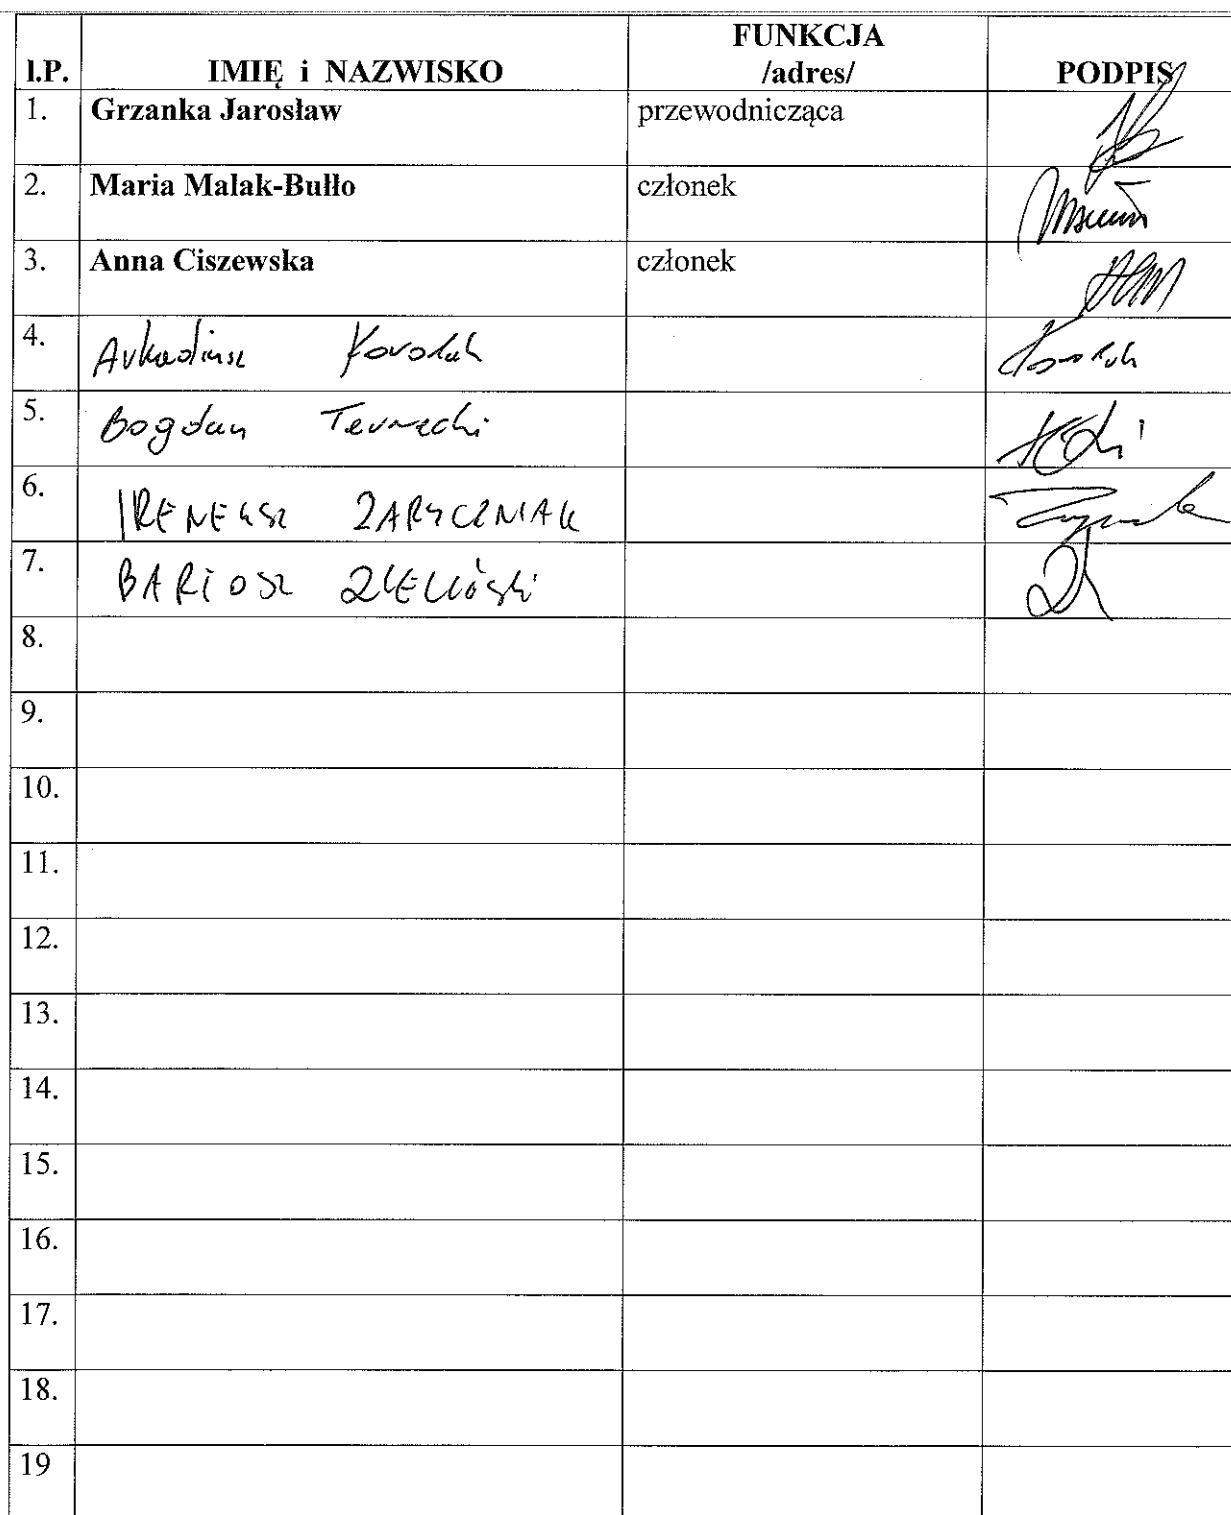 I.P. IMIĘ i NAZWISKO FUNKCJA /adres/ PODPIS
1. Grzanka Jarosław przewodnicząca
2. Maria Malak-Bułło członek
3. Anna Ciszewska członek
4. Arkadiusz
5. Bogdan
6. IRENEUSZ ZARYCZNIAK
7. BARTOSZ
8.
9.
10.
11.
12.
13.
14.
15.
16.
17.
18.
19